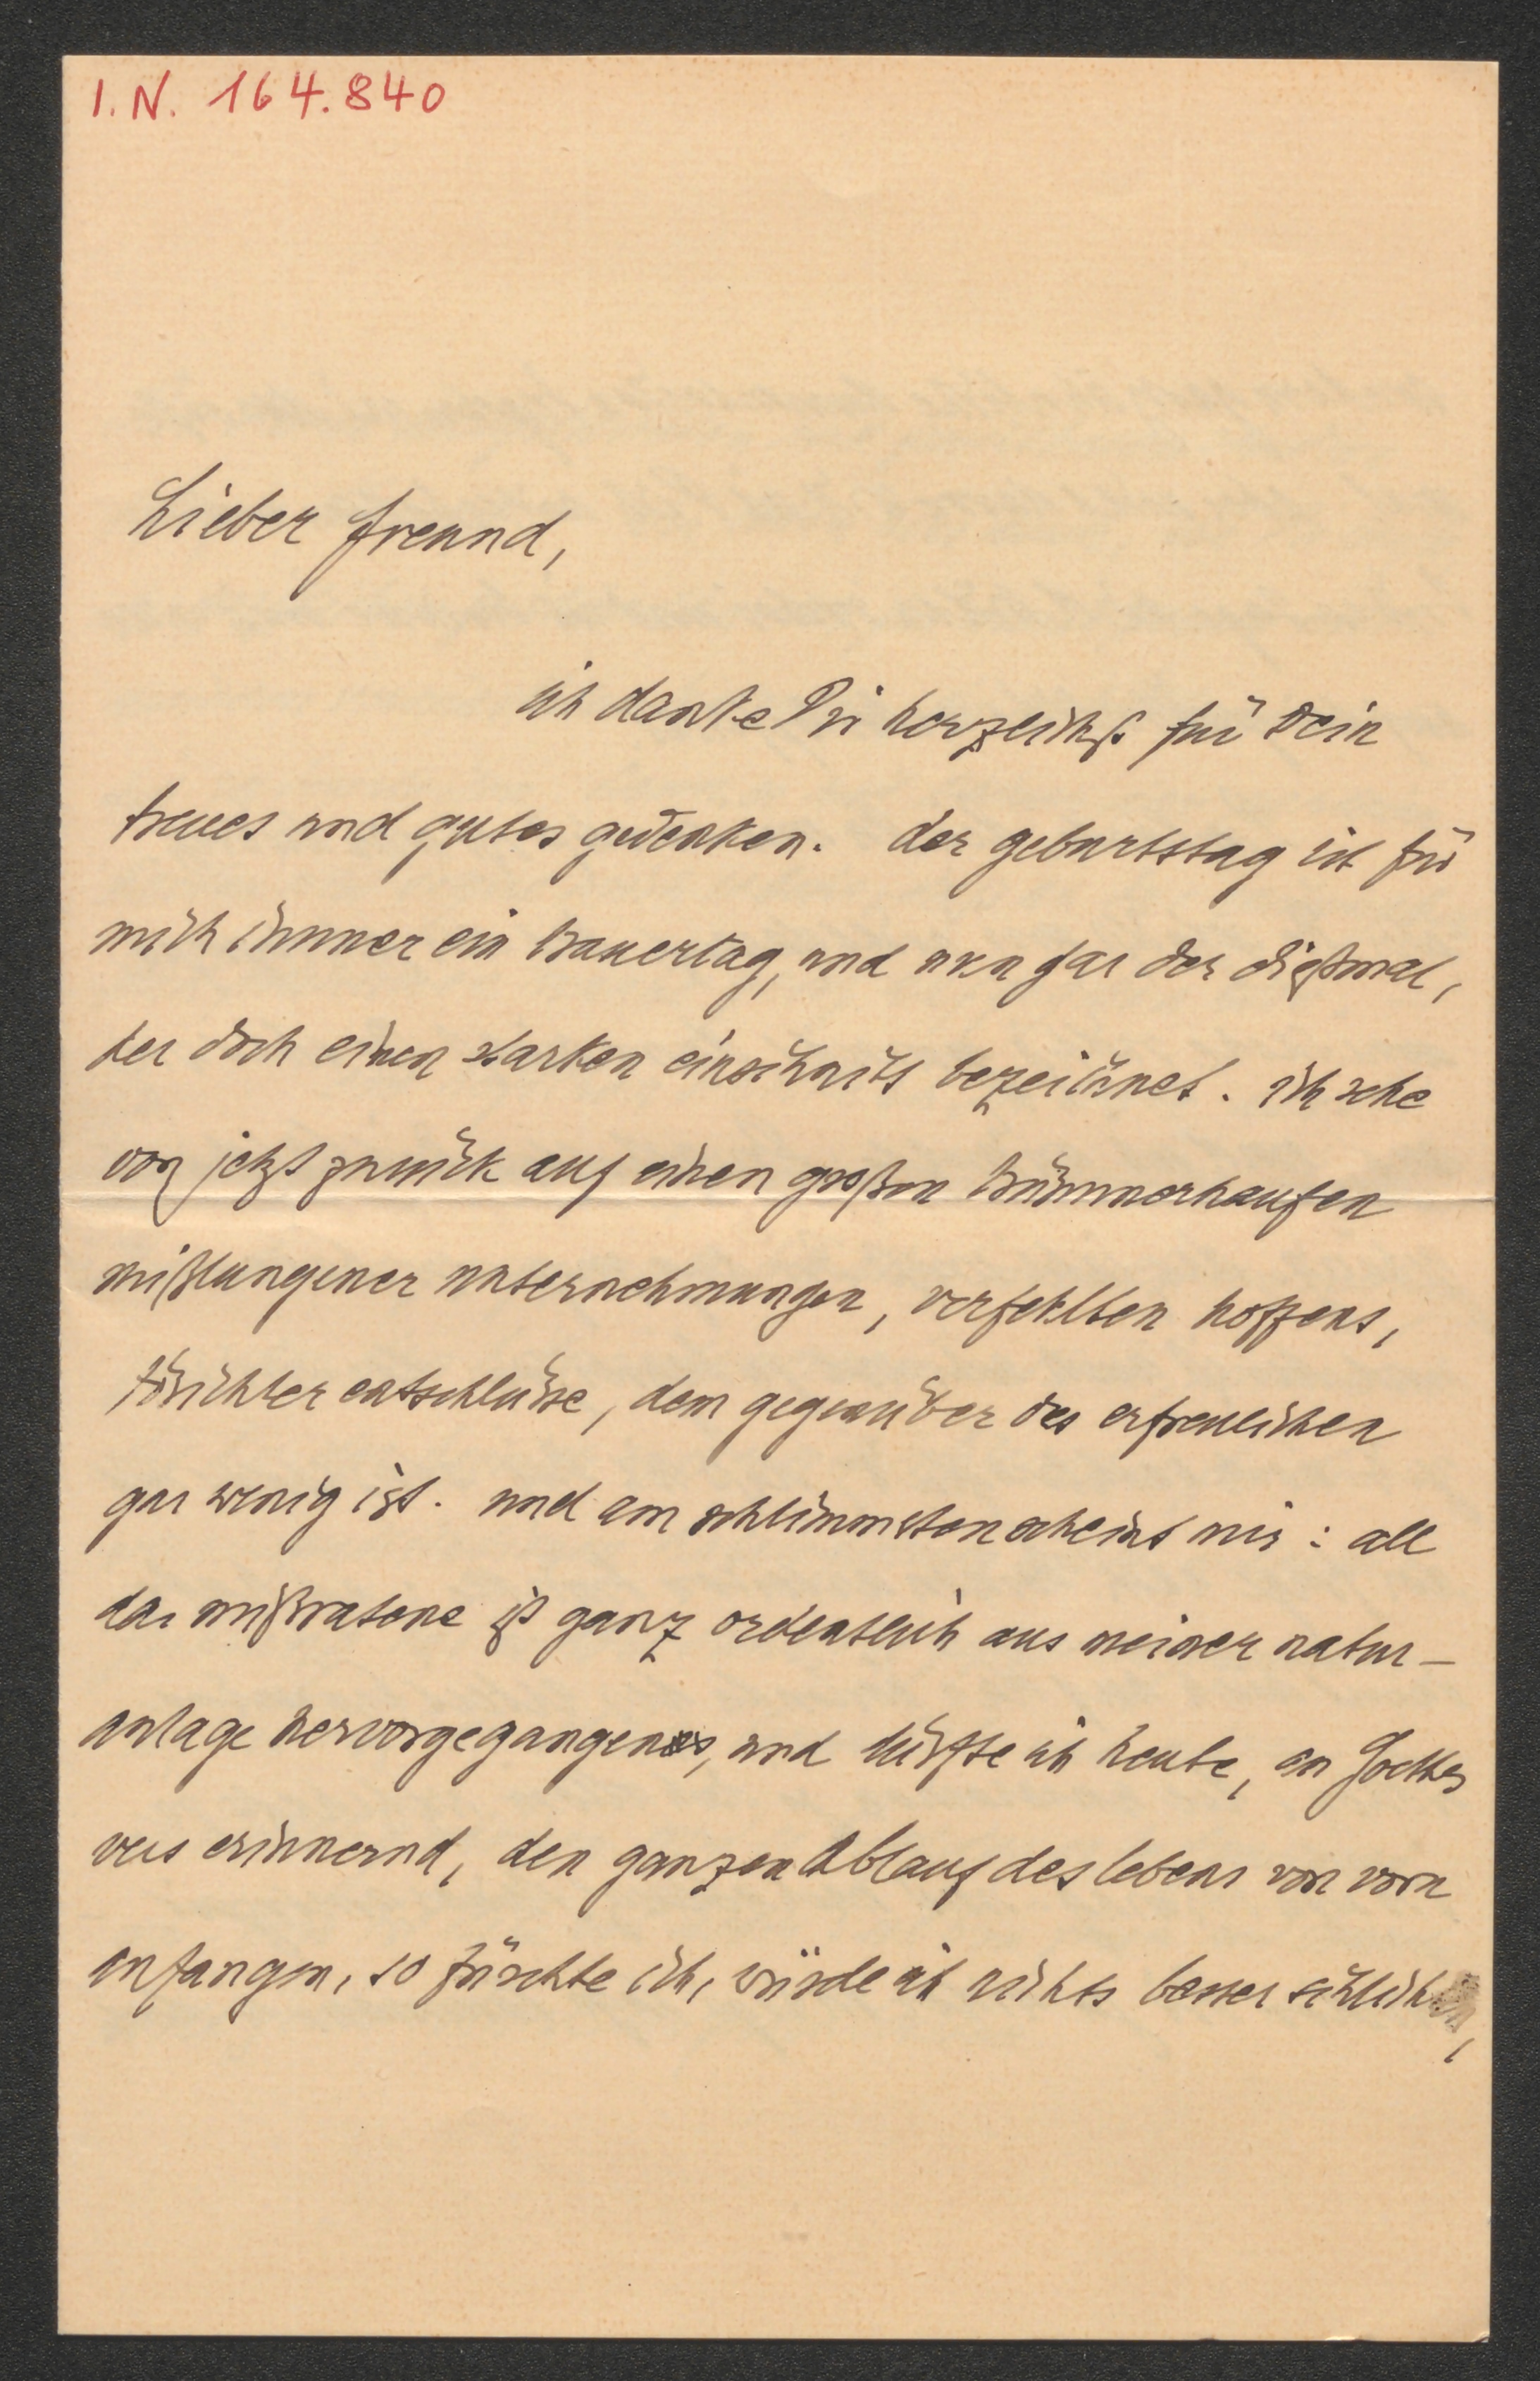 I. N. 164.840
Lieber freund,
ich danke Dir herzlichst für Dein
treues und gutes gedenken. der geburtstag ist für
mich immer ein trauertag, und nun gar der dießmal,
der doch einen starken einschnitt bezeichnet. ich sehe
von jetzt zurück auf einen großen trümmerhaufen
mißlungener unternehmungen, verfehlten hoffens,
törichter entschlüsse, dem gegenüber des erfreulichen
gar wenig ist. und am schlimmsten scheint mir: all
das mißratene ist ganz ordentlich aus meiner natur-
anlage hervorgegangen, und dürfte ich heute, an Goethes
vers erinnernd, den ganzen Ablauf des lebens von vorn
anfangen, so fürchte ich, würde ich nichts besser schlichten,